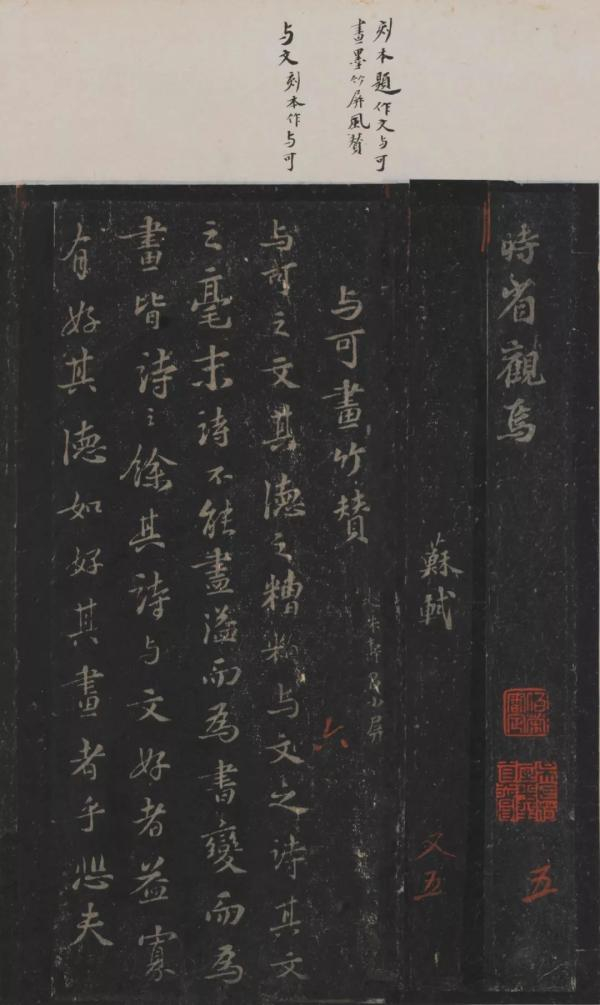 刻本題作文与可
畫墨竹屏風贊
与文刻本作与可
時省觀焉
五
蘇軾
又五
与可畫竹贊
六
与可之文其德之糟粕与文之詩其文
之毫末詩不能盡溢而為書變而為
畫皆詩之餘其詩与文好者益寡
有好其德如好其畫者乎悲夫